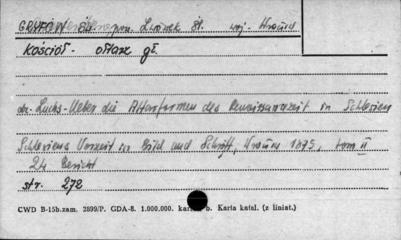 GRYFÓW Śl. pow. Lwówek Śl. woj. Wrocław
Kościół - ołtarz gł.
dr. Luchs - Ueber die Altarformen des Renaissancezeit in Schlesien
Schlesiens Vorzeit in Bild und Schrift, Wrocław 1875, tom II
24 Bericht
str. 272
CWD B-15b.zam. 2899/P. GDA-8. 1.000.000. b. Karta katal. (z liniat.)